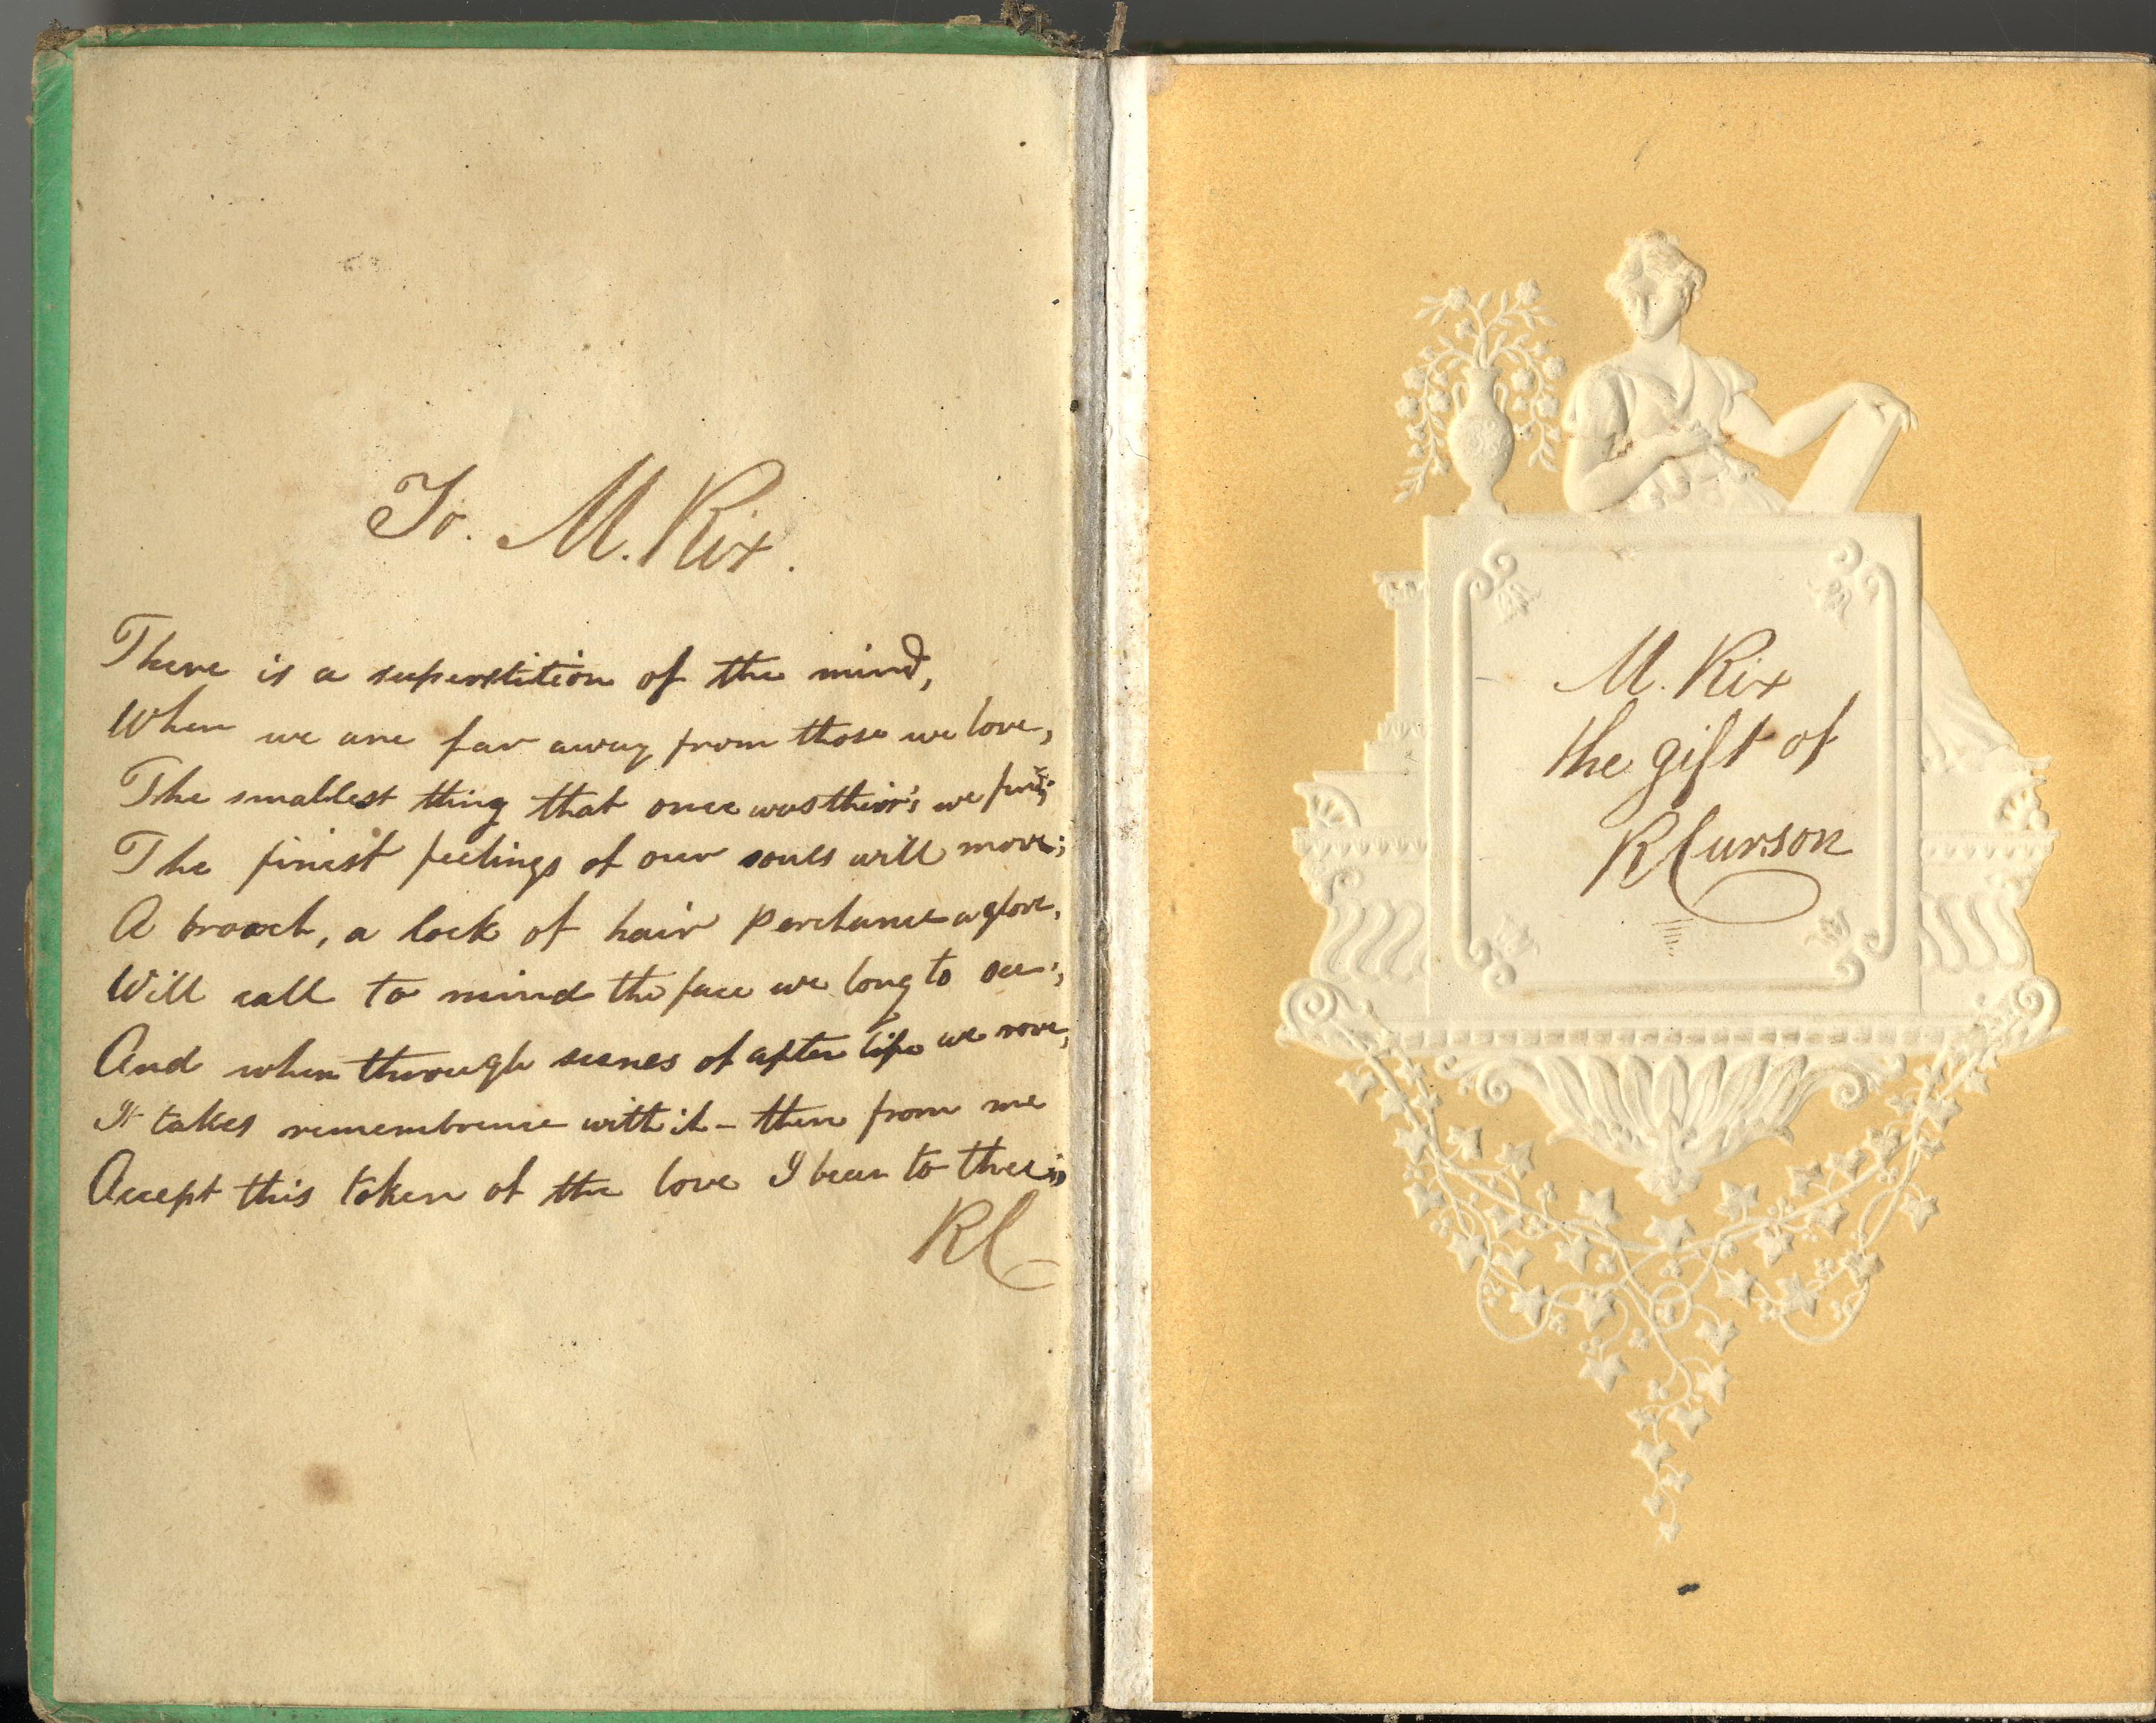 To. M. Rix.
There is a superstition of the mind,
When we are far away from those we love,
The smallest thing that once was their's we find;
The finest feelings of our souls will move;
A brooch, a lock of hair perchance a glove,
Will call to mind the face we long to see;
And when through scenes of after life we rove,
It takes remembrence with it - then from me
Accept this token of the love I bear to thee;
RC
M. Rix
the gift of
R Curson